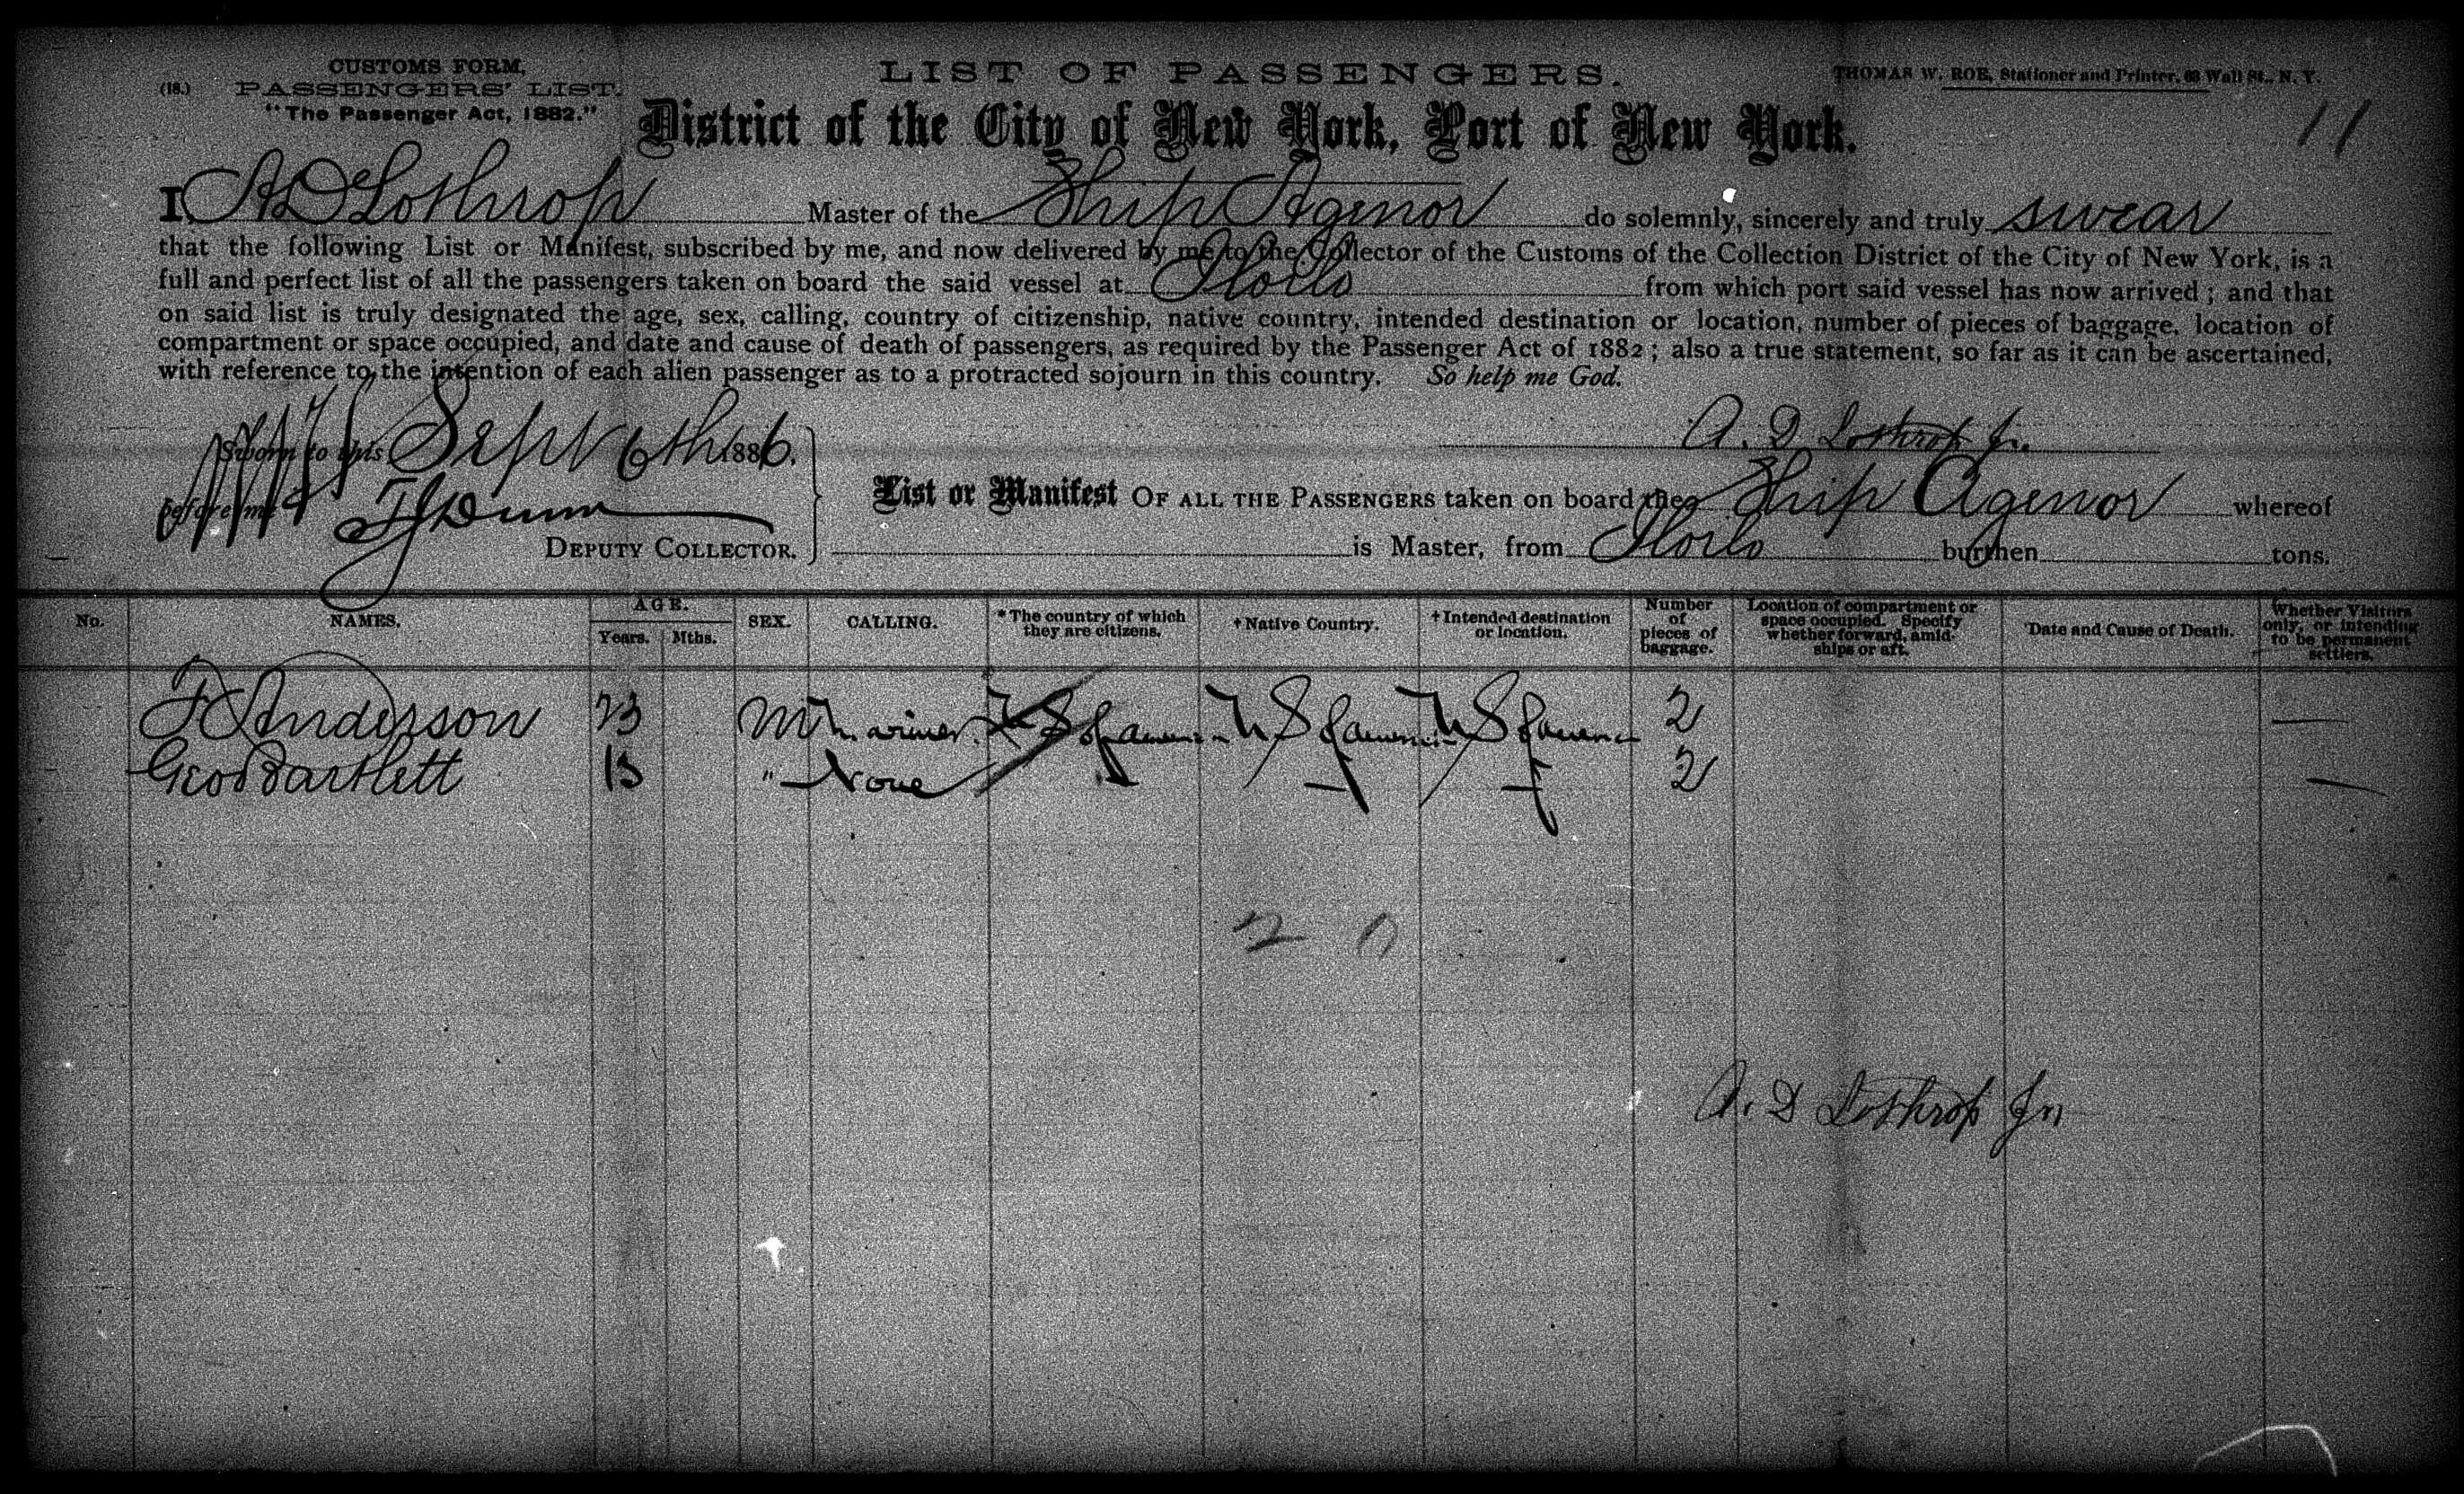 CUSTOMS FORM,
(18.) PASSENGERS' LIST.
"The Passenger Act, 1882."
LIST OF PASSENGERS.
THOMAS W. ROE, Stationer and Printer, 63 Wall St., N. Y.
11
District of the City of New York, Port of New York.
I, A D Lothrop Master of the Ship Agenor do solemnly, sincerely and truly swear
that the following List or Manifest, subscribed by me, and now delivered by me to the Collector of the Customs of the Collection District of the City of New York, is a
full and perfect list of all the passengers taken on board the said vessel at Iloilo from which port said vessel has now arrived; and that
on said list is truly designated the age, sex, calling, country of citizenship, native country, intended destination or location, number of pieces of baggage, location of
compartment or space occupied, and date and cause of death of passengers, as required by the Passenger Act of 1882; also a true statement, so far as it can be ascertained,
with reference to the intention of each alien passenger as to a protracted sojourn in this country. So help me God.
Sworn to this Sept 6th 1886.
A. D Lothrop Jr.
before me TJ Dunn
DEPUTY COLLECTOR.
List or Manifest OF ALL THE PASSENGERS taken on board the Ship Agenor whereof
is Master, from Iloilo burthen tons.
No. NAMES. AGE. Years. Mths. SEX. CALLING. *The country of which they are citizens. †Native Country. †Intended destination or location. Number of pieces of baggage. Location of compartment or space occupied. Specify whether forward, amidships or aft. Date and Cause of Death. Whether Visitors only, or intending to be permanent settlers.
F Anderson 23 M Mariner U S of U S of U S of 2 —
Geo Bartlett 13 " None 2 —
2
A. D Lothrop Jr